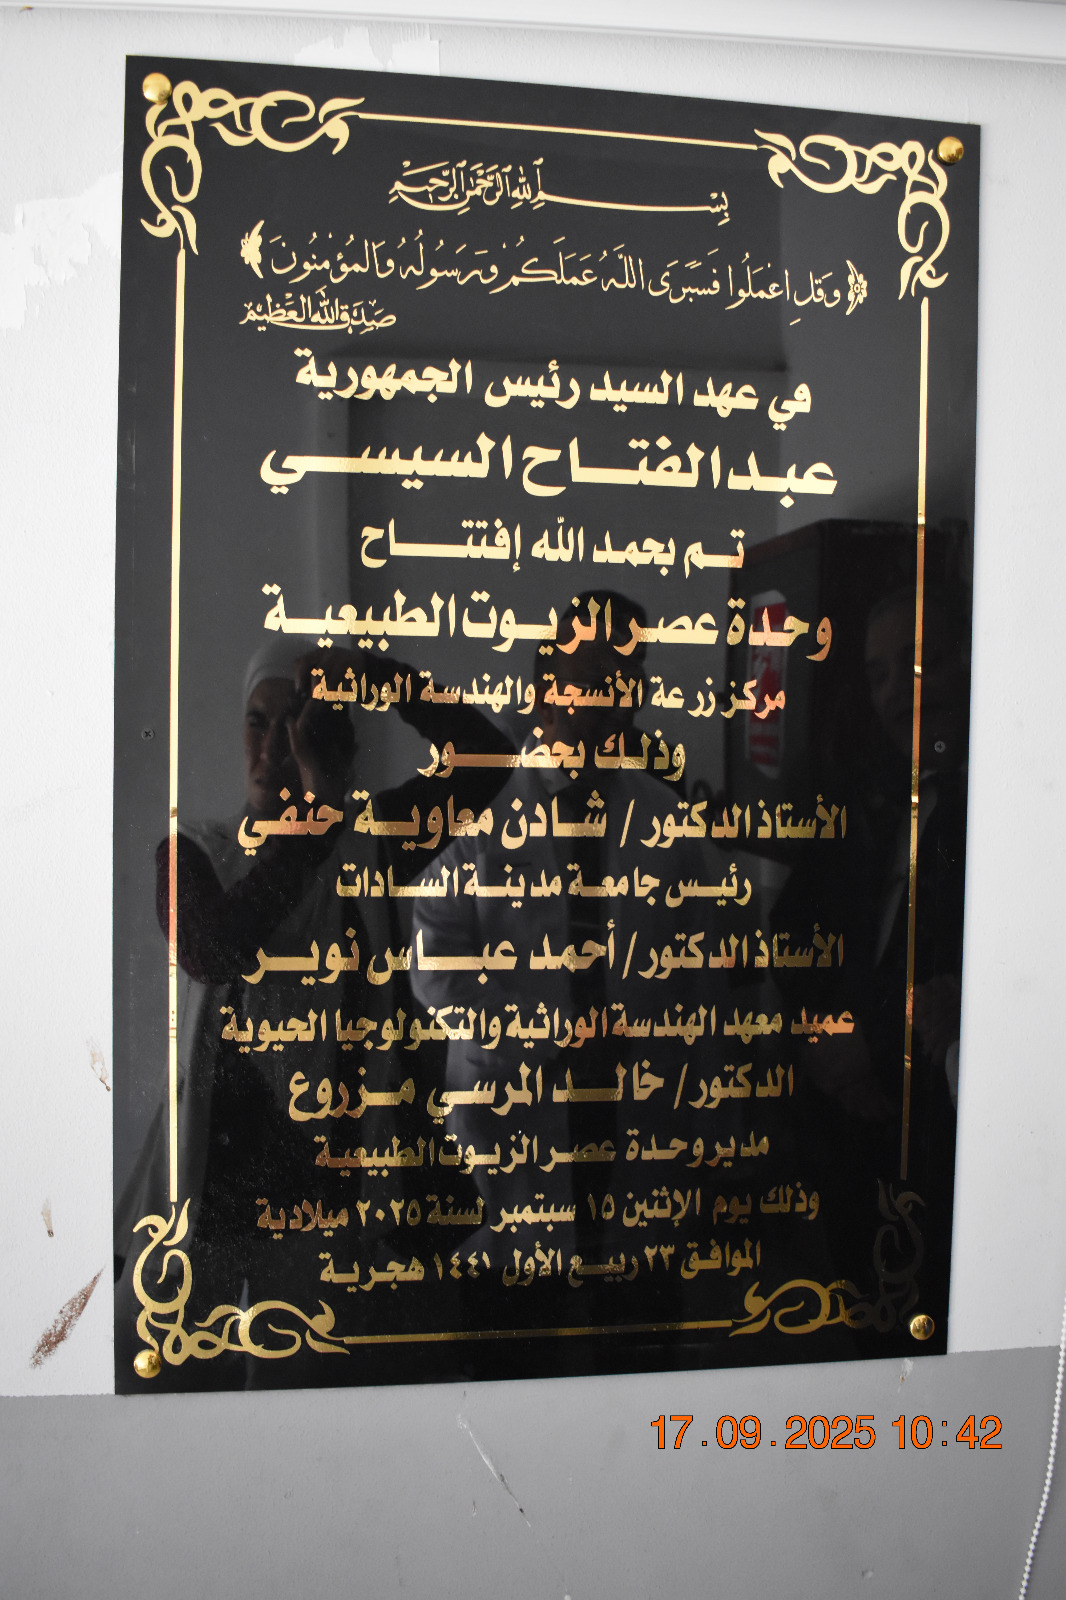 بسم الله الرحمن الرحيم
﴿ وَقُلِ اعْمَلُوا فَسَيَرَى اللَّهُ عَمَلَكُمْ وَرَسُولُهُ وَالْمُؤْمِنُونَ ﴾
صدق الله العظيم
في عهد السيد رئيس الجمهورية
عبد الفتاح السيسي
تم بحمد الله إفتتاح
وحدة عصر الزيوت الطبيعية
مركز زرعة الأنسجة والهندسة الوراثية
وذلك بحضور
الأستاذ الدكتور / شادن معاوية حنفي
رئيس جامعة مدينة السادات
الأستاذ الدكتور / أحمد عباس نوير
عميد معهد الهندسة الوراثية والتكنولوجيا الحيوية
الدكتور / خالد المرسي مزروع
مدير وحدة عصر الزيوت الطبيعية
وذلك يوم الإثنين ١٥ سبتمبر لسنة ٢٠٢٥ ميلادية
الموافق ٢٣ ربيع الأول ١٤٤١ هجرية
17.09.2025 10:42